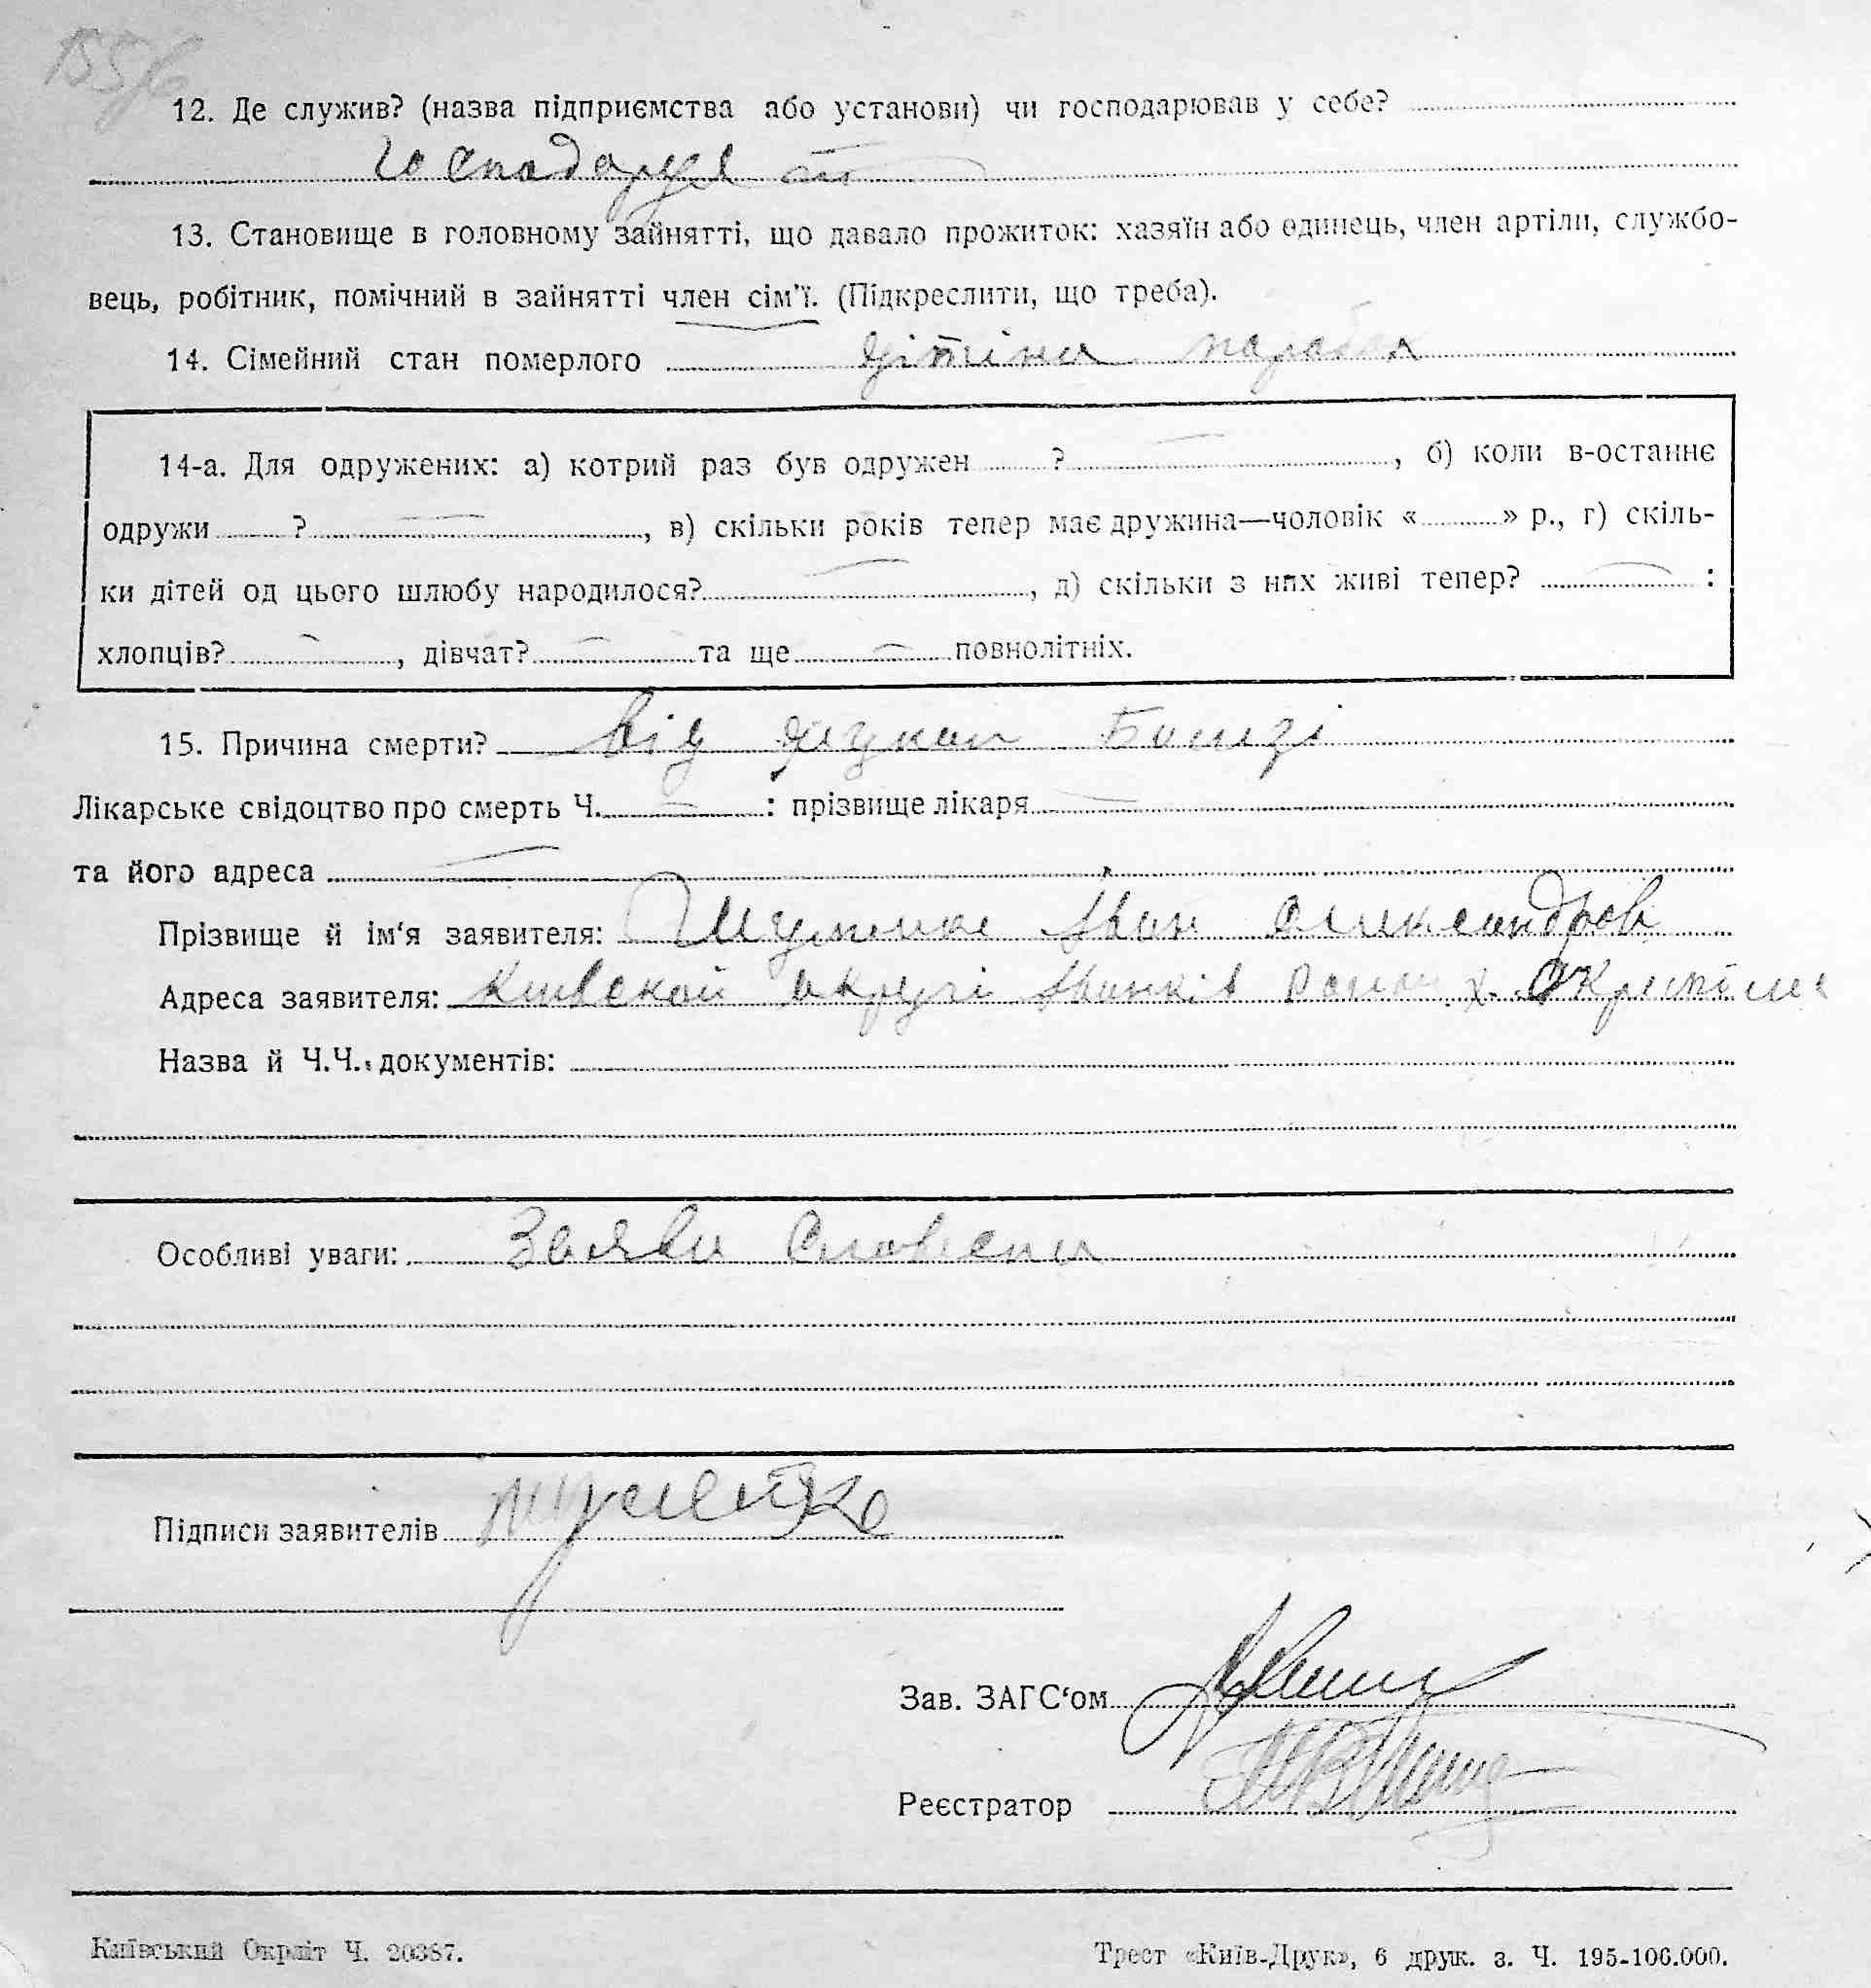 155/б
12. Де служив? (назва підприємства або установи) чи господарював у себе?
Господарує
13. Становище в головному зайнятті, що давало прожиток: хазяїн або одинець, член артіли, службо-
вець, робітник, помічний в зайнятті член сім'ї. (Підкреслити, що треба).
14. Сімейний стан померлого дітіна
14-а. Для одружених: а) котрий раз був одружен ? —, б) коли в-останнє
одружи ? —, в) скільки років тепер має дружина—чоловік « » р., г) скіль-
ки дітей од цього шлюбу народилося? —, д) скільки з них живі тепер? — :
хлопців? —, дівчат? — та ще — повнолітніх.
15. Причина смерти? Від
Лікарське свідоцтво про смерть Ч. — : прізвище лікаря —
та його адреса —
Прізвище й ім'я заявителя: Шуменко Іван Олександров
Адреса заявителя: Киівской округі Іванків Район х.
Назва й Ч.Ч. документів:
Особливі уваги: Заява Словесна
Підписи заявителів Шуменко
Зав. ЗАГС'ом
Реєстратор
Київський Окрліт Ч. 20387.
Трест «Київ-Друк», 6 друк. з. Ч. 195-100.000.